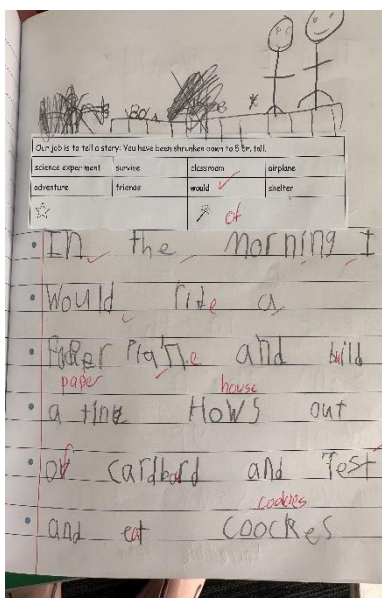 Our job is to tell a story: You have been shrunken down to 5 cm. tall.
science experiment survive classroom airplane
adventure friends would shelter
of
In the morning I
Would ride a
Paper Plane and build
paper house
a tine HowS out
of cardbord and Test
cookies
and eat coockes